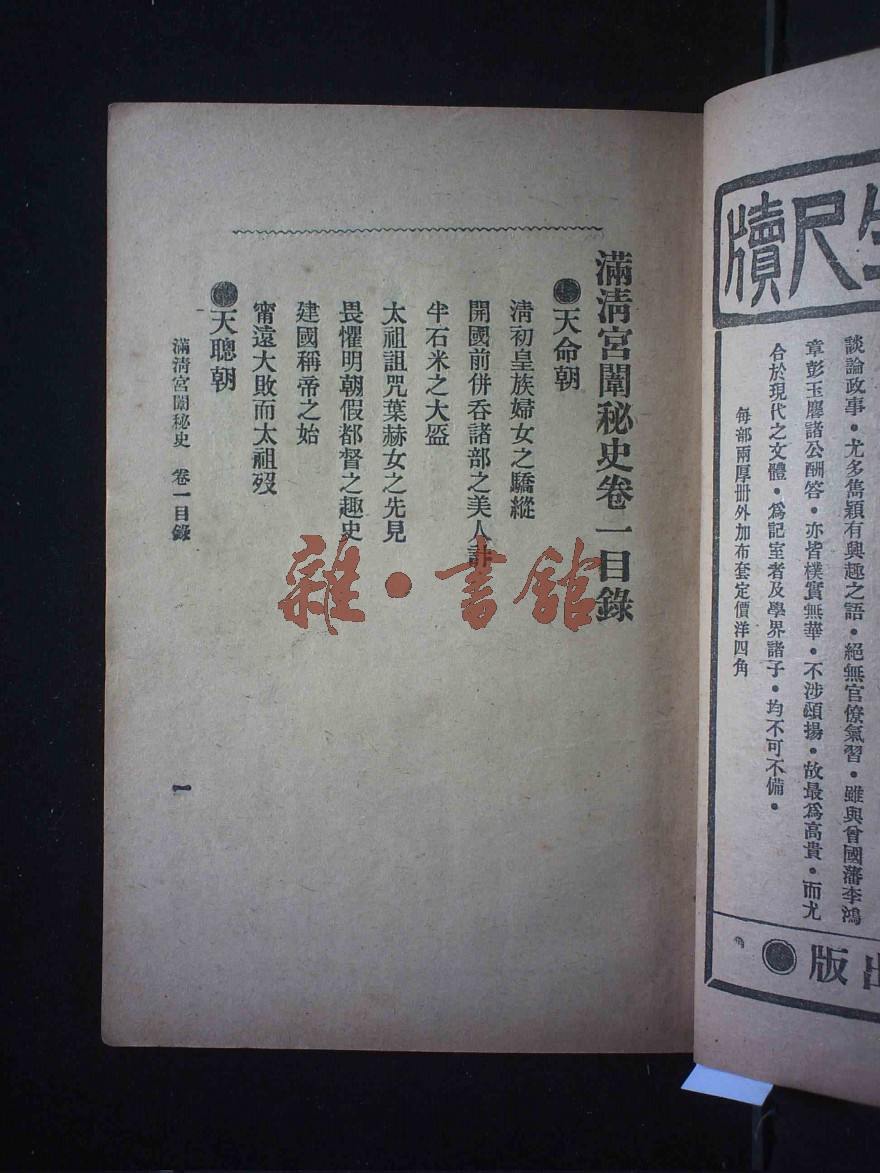 生尺牘
談論政事•尤多雋穎有興趣之語•絕無官僚氣習•雖與曾國藩李鴻
章彭玉麐諸公酬答•亦皆樸實無華•不涉頌揚•故最爲高貴•而尤
合於現代之文體•爲記室者及學界諸子•均不可不備•
每部兩厚册外加布套定價洋四角
出版●
滿淸宮闈秘史卷一目錄
●天命朝
淸初皇族婦女之驕縱
開國前併吞諸部之美人計
半石米之大盜
太祖詛咒葉赫女之先見
畏懼明朝假都督之趣史
建國稱帝之始
甯遠大敗而太祖歿
●天聰朝
滿淸宮闈秘史 卷一目錄
一
雜•書館